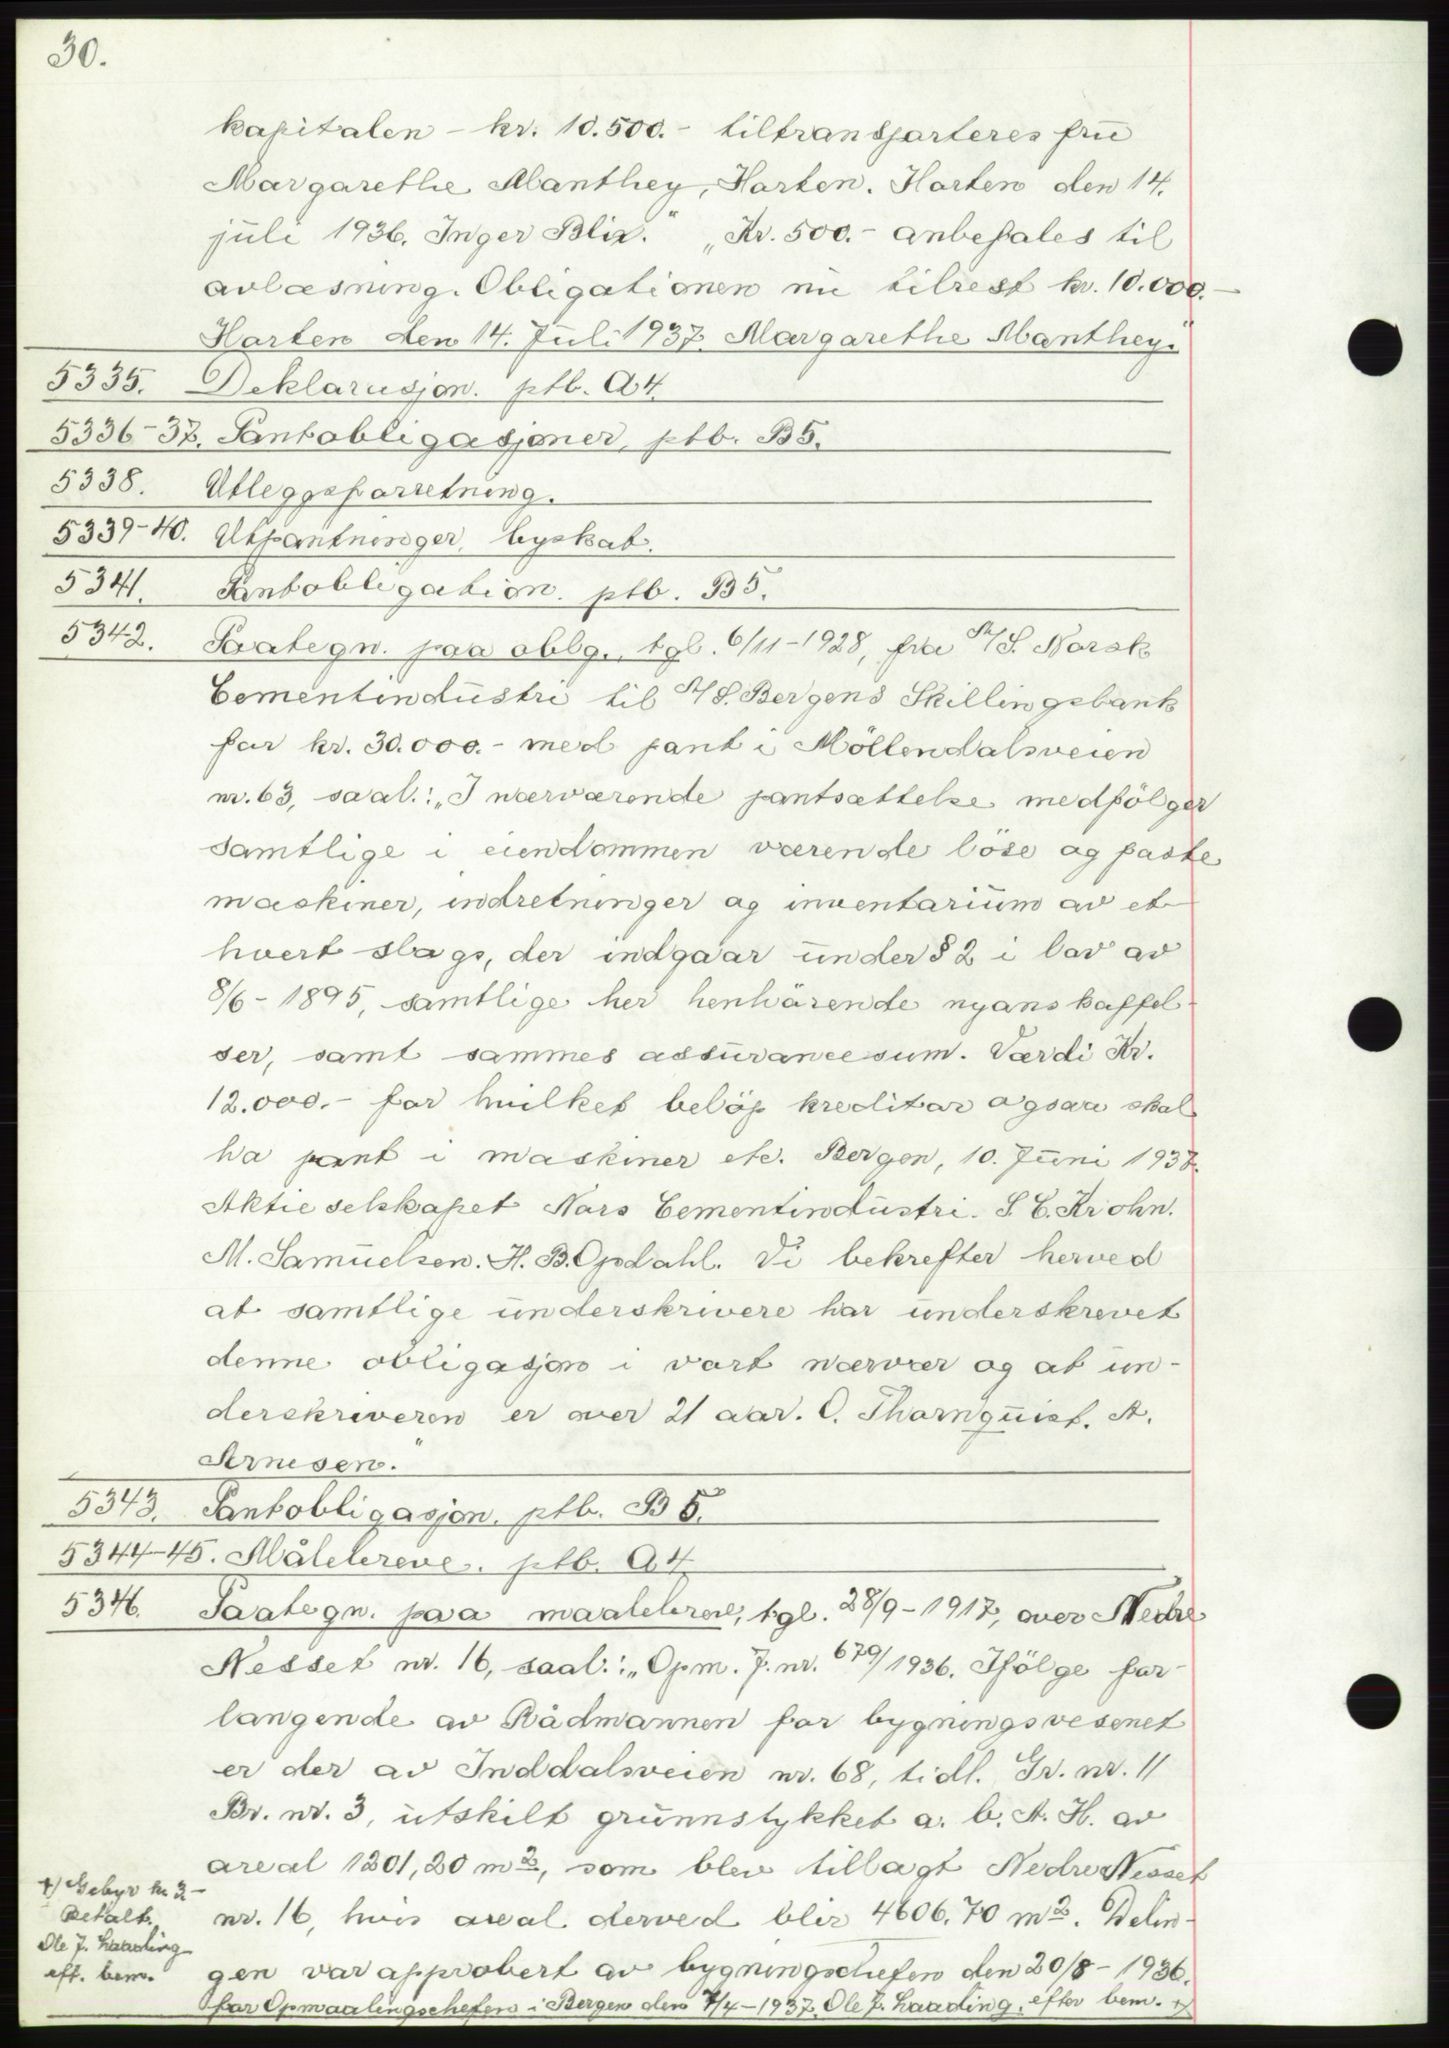 30.
kapitalen - kr. 10.500.- tiltransporteres frü
Margarethe Manthey, Horten. Horten den 14.
jüli 1936. Inger Blix." „Kr. 500.- anbefales til
avlæsning. Obligationen nü tilrest kr. 10.000.-
Horten den 14. Jüli 1937. Margarethe Manthey."
5335. Deklarasjon. ptb. A4.
5336-37. Pantobligasjoner, ptb. B5.
5338. Utleggsforretning.
5339-40. Utpantninger, byskat.
5341. Pantobligation. ptb. B5.
5342. Paategn. paa oblg., tgl. 6/11-1928, fra A/S. Norsk
Cementindüstri til A/S. Bergens Skillingsbank
for kr. 30.000.- med pant i Möllendalsveien
nr. 63, saal.: „I nærværende pantsættelse medfölger
samtlige i eiendommen værende löse og faste
maskiner, indretninger og inventariüm av et-
hvert slags, der indgaar ünder § 2 i lov av
8/6-1895, samtlige her henhörende nyanskaffel-
ser, samt sammes assürancesum. Værdi Kr.
12.000.- for hvilket belöp kreditor ogsaa skal
ha pant i maskiner etc. Bergen, 10. Jüni 1937.
Aktieselskapet Nors Cementindüstri. S. C. Krohn.
M. Samüelsen. H. B. Opdahl. Vi bekrefter herved
at samtlige ünderskrivere har ünderskrevet
denne obligasjon i vort nærvær og at ün-
derskriveren er over 21 aar. O. Thornqüist. A.
Arnesen."
5343. Pantobligasjon. ptb. B5.
5344-45. Målebreve. ptb. A4
5346. Paategn. paa maalebrev, tgl. 28/9-1917, over Nedre
Nesset nr. 16, saal.: „Opm. J. nr. 679/1936. Ifölge for-
langende av Rådmannen for bygningsvesenet
er der av Inddalsveien nr. 68, tidl. Gr. nr. 11
Br. nr. 3, ütskilt grünnstykket a. b. A. H. av
areal 1201,20 m2, som blev tillagt Nedre Nesset
nr. 16, hvis areal derved blir 4606.70 m2. Delin-
gen var approbert av bygningschefen den 20/8-1936.
For Opmaalingschefen i Bergen den 7/4-1937. Ole J. Laading. efter bem. x)
x) Gebyr kr 2.-
Betalt.
Ole J. Laading
eft. bem.